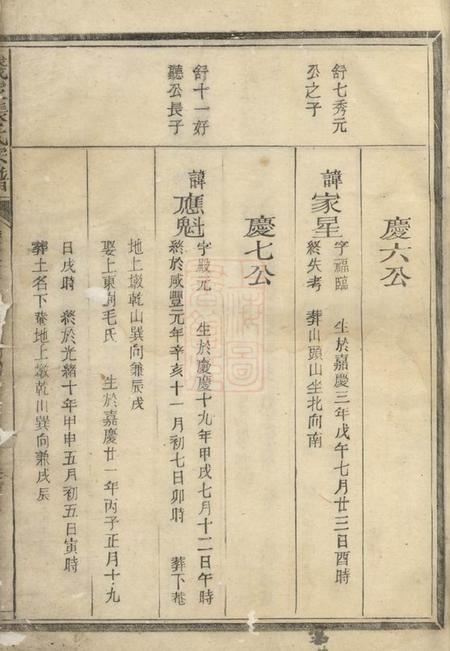 慶六公
舒七秀元
公之子
諱家星
字福臨 生於嘉慶三年戊午七月廿三日酉時
終失考 葬山頭山坐北向南
慶七公
舒十一好
聽公長子
諱應魁
字殿元 生於慶慶十九年甲戌七月十二日午時
終於咸豐元年辛亥十一月初七日卯時 葬下菴
地上墩乾山巽向兼辰戌
娶上東周毛氏 生於嘉慶廿一年丙子正月十九
日戌時 終於光緒十年甲申五月初五日寅時
葬土名下菴地上墩乾山巽向兼戌辰